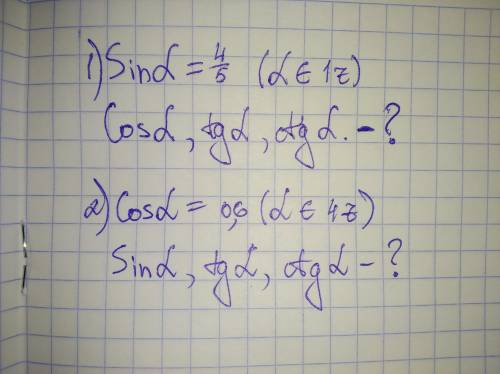 1) Sinα = 4/5 (α ∈ 1z)
Cosα, tgα, ctgα. - ?
2) Cosα = 0,6 (α ∈ 4z)
Sinα, tgα, ctgα - ?